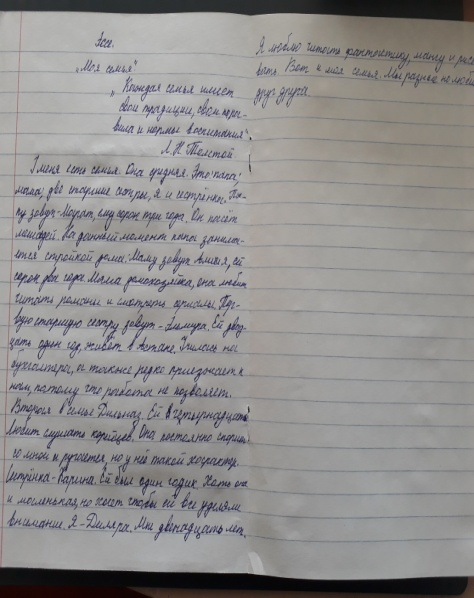 Эссе.
„Моя семья"
„Каждая семья имеет
свои традиции, свои пра-
вила и нормы воспитания".
Л.Н Толстой
У меня есть семья. Она средняя. Это: папа,
мама, две старшие сестры, я и сестрёнка. Па-
пу зовут-Марат, ему сорок три года. Он пасёт
лошадей. На данный момент папа занима-
ется стройкой дома. Маму зовут ей
сорок два года. Мама домохозяйка, она любит
читать романы и смотреть сериалы. Пер-
вую старшую сестру зовут- Ей двад-
цать один год, живёт в Астане. Училась на
бухгалтера, а также редко приезжает к
нам, потому что работа не позволяет.
Вторая в семье Дильназ. Ей четырнадцать
любит слушать корейцев. Она постоянно спорит
со мной и ругается, но у неё такой характер
Сестрёнка-Карина. Ей был один годик. Хоть она
и маленькая, но хочет чтобы ей все уделяли
внимание. Я-Диляра. Мне двенадцать лет.
Я люблю читать фантастику, мангу и рисо
вать Вот и моя семья. Мы разные но любим
друг друга